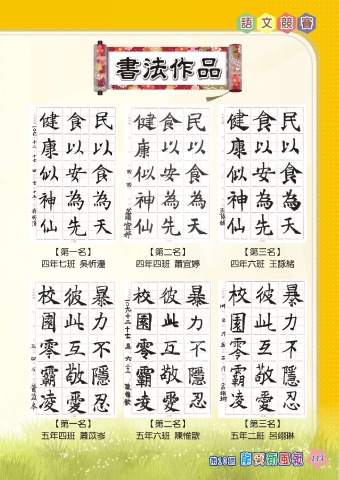 語文競賽
書法作品
民以食為天
食以安為先
健康似神仙
民以食為天
食以安為先
健康似神仙
民以食為天
食以安為先
健康似神仙
【第一名】
四年七班 吳忻潼
【第二名】
四年四班 蕭宜婷
【第三名】
四年六班 王詠緒
暴力不隱忍
彼此互敬愛
校園零霸凌
暴力不隱忍
彼此互敬愛
校園零霸凌
暴力不隱忍
彼此互敬愛
校園零霸凌
【第一名】
五年四班 蕭苡岑
【第二名】
五年六班 陳惟歆
【第三名】
五年二班 呂翊琳